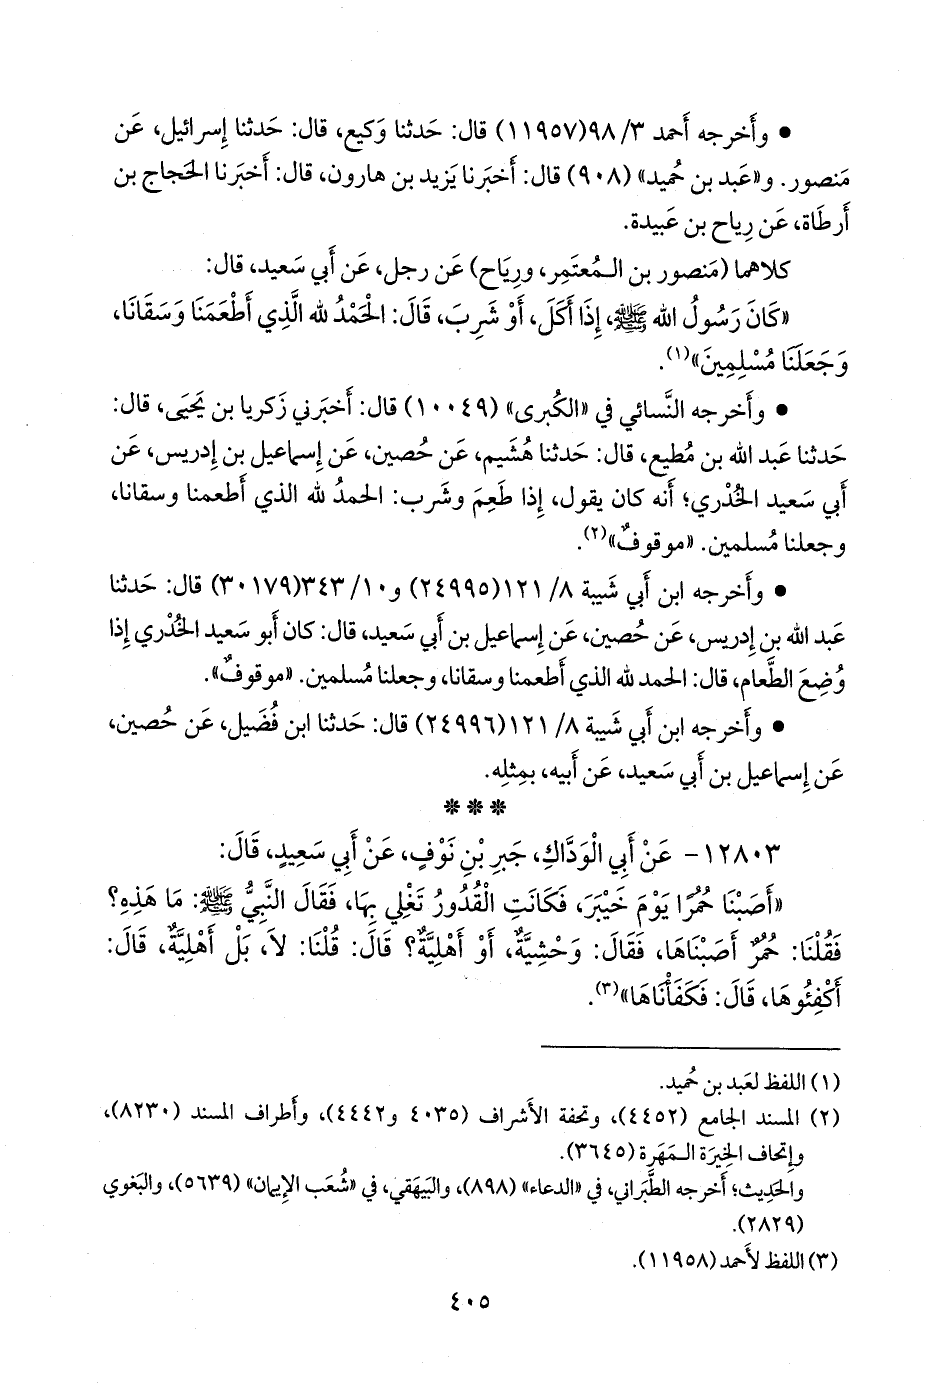 • وأَخرجه أَحمد ٣/ ٩٨(١١٩٥٧) قال: حَدثنا وَكيع، قال: حَدثنا إِسرائيل، عَن
مَنصور. و«عَبد بن حُميد» (٩٠٨) قال: أَخبَرنا يَزيد بن هارون، قال: أَخبَرنا الحَجاج بن
أَرطَاة، عَن رِياح بن عَبيدة.
كلاهما (مَنصور بن المُعتَمِر، ورِيَاح) عَن رجل، عَن أَبي سَعيد، قال:
«كَانَ رَسُولُ الله ﷺ، إِذَا أَكَلَ، أَوْ شَرِبَ، قَالَ: الْحَمْدُ لله الَّذِي أَطْعَمَنَا وَسَقَانَا،
وَجَعَلَنَا مُسْلِمِينَ»(١).
• وأَخرجه النَّسائي في «الكُبرى» (١٠٠٤٩) قال: أَخبَرني زَكريا بن يَحيَى، قال:
حَدثنا عَبد الله بن مُطيع، قال: حَدثنا هُشَيم، عَن حُصين، عَن إِسماعيل بن إِدريس، عَن
أَبي سَعيد الخُدْري؛ أَنه كان يقول، إِذا طَعِمَ وشَرب: الحمدُ لله الذي أَطعمنا وسقانا،
وجعلنا مُسلمين. «موقوفٌ»(٢).
• وأَخرجه ابن أَبي شَيبة ٨/ ١٢١(٢٤٩٩٥) و١٠/ ٣٤٣(٣٠١٧٩) قال: حَدثنا
عَبد الله بن إِدريس، عَن حُصين، عَن إِسماعيل بن أَبي سَعيد، قال: كان أَبو سَعيد الخُدْري إِذا
وُضِعَ الطَّعام، قال: الحمد لله الذي أَطعمنا وسقانا، وجعلنا مُسلمين. «موقوفٌ».
• وأَخرجه ابن أَبي شَيبة ٨/ ١٢١(٢٤٩٩٦) قال: حَدثنا ابن فُضَيل، عَن حُصين،
عَن إِسماعيل بن أَبي سَعيد، عَن أَبيه، بمِثلِه.
* * *
١٢٨٠٣- عَنْ أَبِي الْوَدَّاكِ، جَبرِ بْنِ نَوْفٍ، عَنْ أَبِي سَعِيدٍ، قَالَ:
«أَصَبْنَا حُمُرًا يَوْمَ خَيْبَرَ، فَكَانَتِ الْقُدُورُ تَغْلِي بِهَا، فَقَالَ النَّبِيُّ ﷺ: مَا هَذِهِ؟
فَقُلْنَا: حُمُرٌ أَصَبْنَاهَا، فَقَالَ: وَحْشِيَّةٌ، أَوْ أَهْلِيَّةٌ؟ قَالَ: قُلْنَا: لاَ، بَلْ أَهْلِيَّةٌ، قَالَ:
أَكْفِئُوهَا، قَالَ: فَكَفَأْنَاهَا»(٣).
(١) اللفظ لعَبد بن حُميد.
(٢) المسند الجامع (٤٤٥٢)، وتحفة الأشراف (٤٠٣٥ و٤٤٤٢)، وأطراف المسند (٨٢٣٠)،
وإتحاف الخِيرَة المَهَرة (٣٦٤٥).
والحَدِيث؛ أخرجه الطَّبَراني، في «الدعاء» (٨٩٨)، والبَيهَقي، في «شُعَب الإيمان» (٥٦٣٩)، والبَغوي
(٢٨٢٩).
(٣) اللفظ لأحمد (١١٩٥٨).
٤٠٥